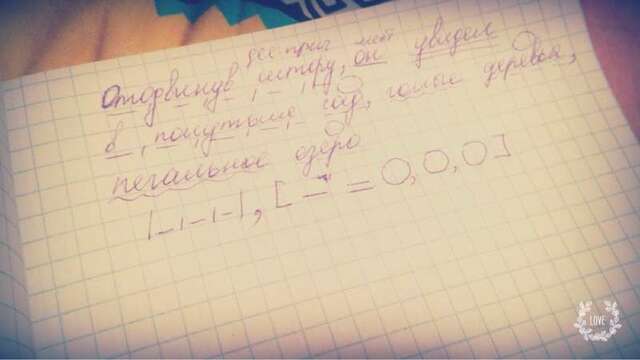 дееприч мест
Отодвинув штору, он увидел
в полутьме сад, голые деревья,
печальное озеро
|-·-·-|, [ — = O, O, O ]
LOVE